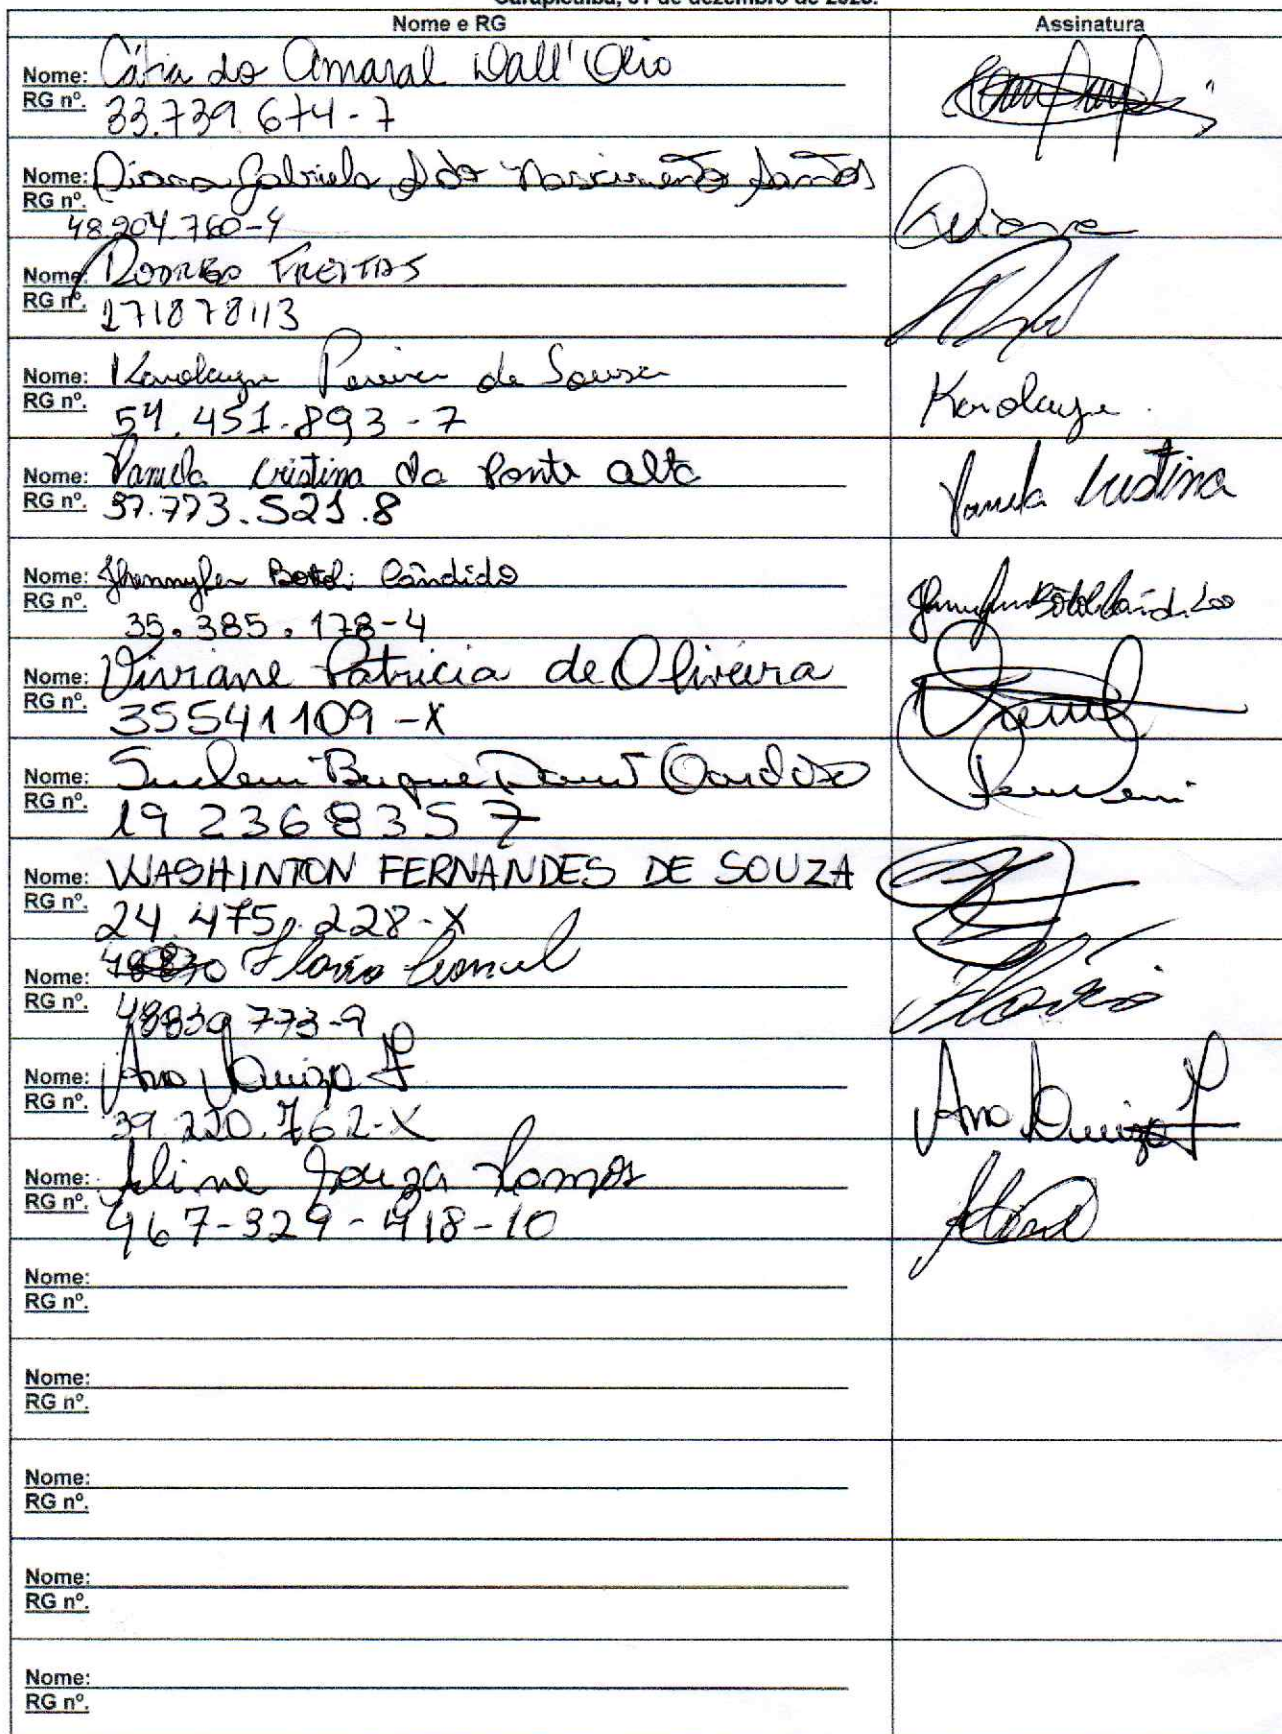 Carapicuíba, 31 de dezembro de 2023.
Nome e RG Assinatura
Nome: Cátia do Amaral Dall'Olio
RG nº. 33.739.674-7
Nome: Diana Gabriela do Nascimento Santos
RG nº. 48.204.760-4 Diana
Nome: Rodrigo FREITAS
RG nº. 271878113
Nome: Karolayne Pereira de Sousa
RG nº. 54.451.893-7 Karolayne
Nome: Pamela Cristina da Ponte alta
RG nº. 37.773.521.8 Pamela Cristina
Nome: Jhennyfer Botoli Cândido
RG nº. 35.385.178-4 Jhennyfer Botoli Cândido
Nome: Viviane Patricia de Oliveira
RG nº. 35541109-X
Nome: Suelem Cardoso
RG nº. 192368357
Nome: WASHINTON FERNANDES DE SOUZA
RG nº. 24.475.228-X
Nome: Flavio
RG nº. 48839773-9 Flavio
Nome: Ana
RG nº. 39.220.762-X Ana
Nome: Aline Souza Ramos
RG nº. 467-329-418-10
Nome:
RG nº.
Nome:
RG nº.
Nome:
RG nº.
Nome:
RG nº.
Nome:
RG nº.